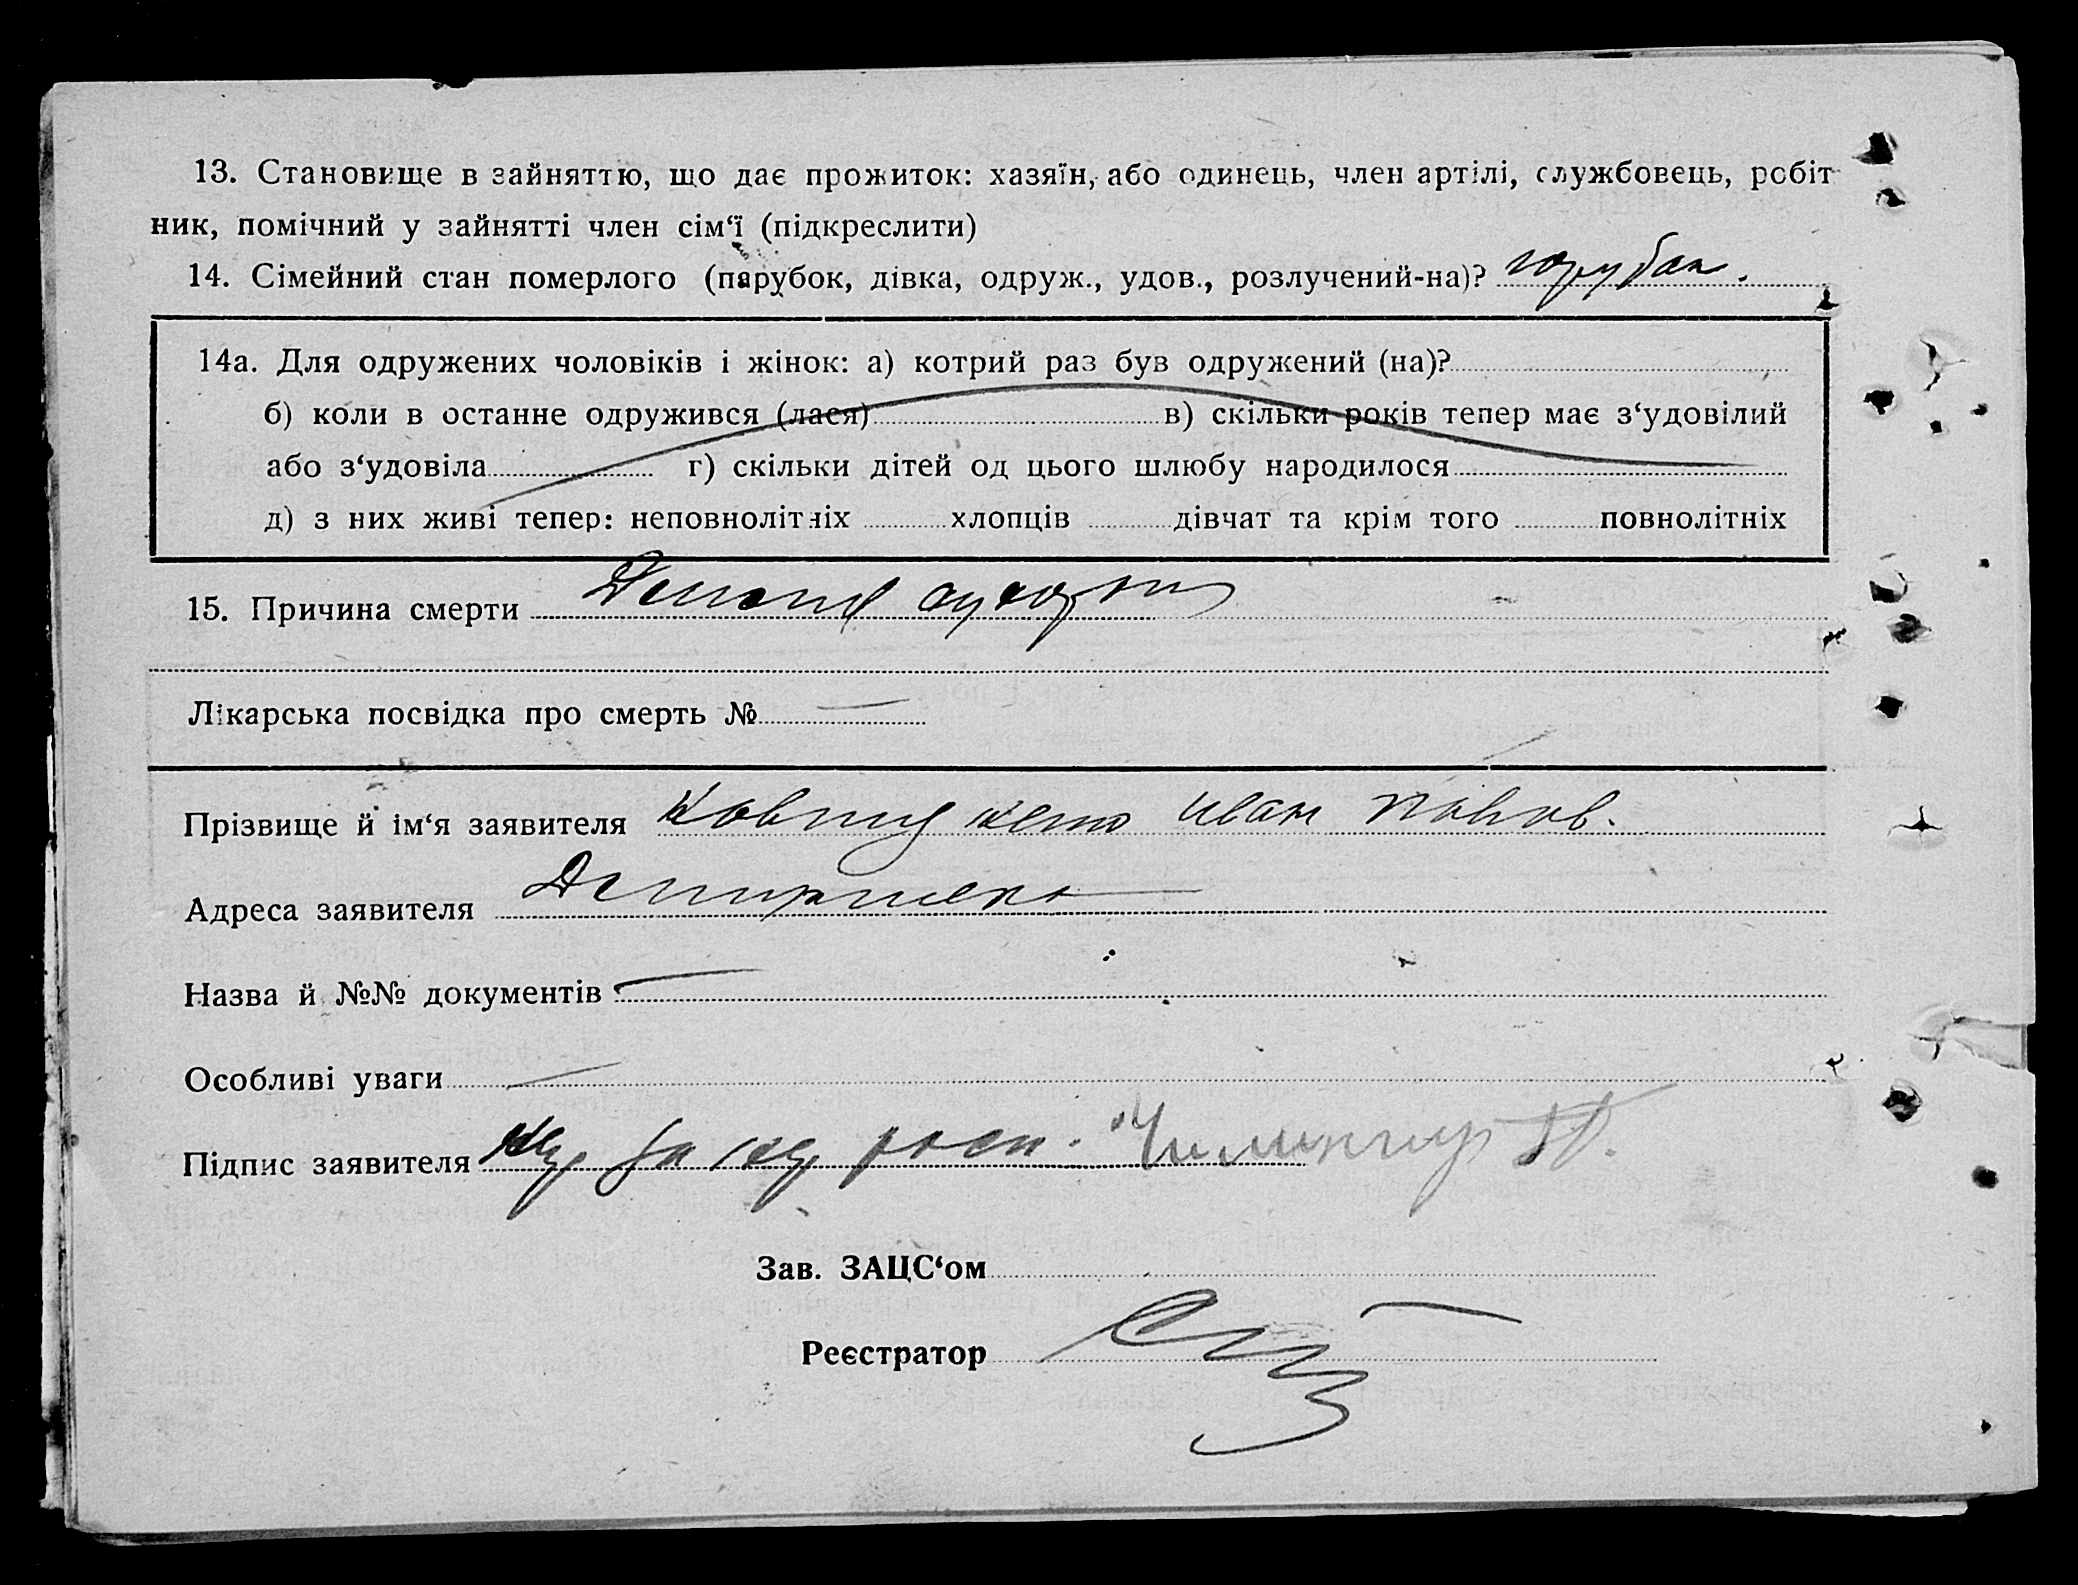 13. Становище в зайняттю, що дає прожиток: хазяїн, або одинець, член артілі, службовець, робіт
ник, помічний у зайнятті член сім‘ї (підкреслити)
14. Сімейний стан померлого (парубок, дівка, одруж., удов., розлучений-на)? парубок.
14а. Для одружених чоловіків і жінок: а) котрий раз був одружений (на)?
б) коли в останне одружився (лася) в) скільки років тепер має з‘удовілий
або з‘удовіла г) скільки дітей од цього шлюбу народилося
д) з них живі тепер: неповнолітніх хлопців дівчат та крім того повнолітніх
15. Причина смерти
Лікарська посвідка про смерть № —
Прізвище й ім‘я заявителя Иван
Адреса заявителя
Назва й №№ документів —
Особливі уваги —
Підпис заявителя
Зав. ЗАЦС‘ом
Реєстратор